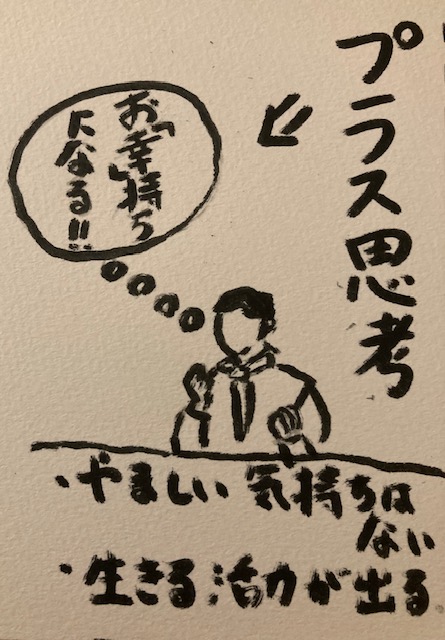 プラス思考
お「幸」持ち
になる!!
・やましい気持ちは
ない
・生きる活力が出る